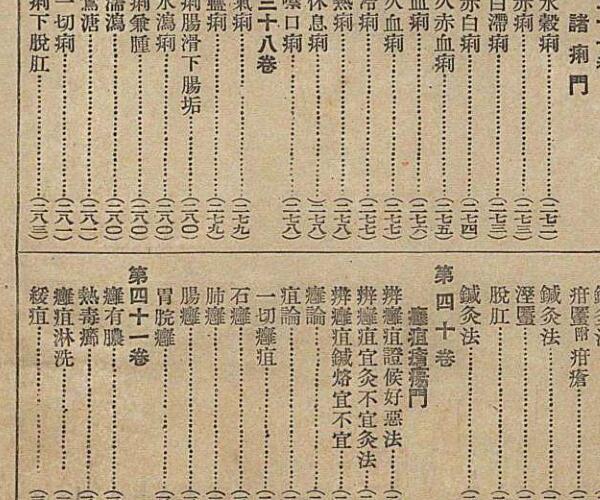 諸痢門
水穀痢……(二七二)
赤痢……(二七三)
白滯痢……(二七三)
赤白痢……(二七四)
久赤血痢……(二七五)
血痢……(二七六)
久血痢……(二七七)
冷痢……(二七七)
熱痢……(二七八)
休息痢……(二七八)
噤口痢……(二七八)
三十八卷
氣痢……(二七九)
蠱痢……(二七九)
痢腸滑下腸垢……(二八〇)
水瀉痢……(二八〇)
痢兼腫……(二八〇)
濡瀉……(二八〇)
鶩溏……(二八一)
一切痢……(二八一)
痢下脫肛……(二八三)
鍼灸法
疳䘌附疳瘡……
鍼灸法……
溼䘌……
脫肛……
鍼灸法……
第四十卷
癰疽瘡瘍門
辨癰疽證候好惡法……
辨癰疽宜灸不宜灸法……
辨癰疽鍼烙宜不宜……
癰論……
疽論……
一切癰疽……
石癰……
肺癰……
腸癰……
胃脘癰……
第四十一卷
癰有膿……
熱毒癤……
癰疽淋洗……
緩疽……